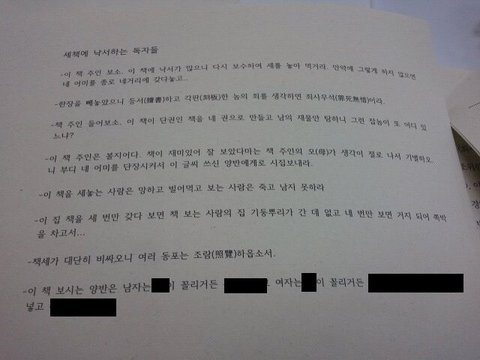 세책에 낙서하는 독자들
-이 책 주인 보소. 이 책에 낙서가 많으니 다시 보수하여 세를 놓아 먹거라. 만약에 그렇게 하지 않으면
네 어미를 종로 네거리에 갖다놓고..
-한장을 빼놓았으니 등서(謄書)하고 각판(刻板)한 놈의 죄를 생각하면 죄사무석(罪死無惜)이라.
-책 주인 들어보소. 이 책이 단권인 책을 네 권으로 만들고 남의 재물만 탐하니 그런 잡놈이 또 어디 있
느냐?
-이 책 주인은 볼지어다. 책이 재미있어 잘 보았다마는 책 주인의 모(母)가 생각이 절로 나서 기별하오
니 부디 네 어미를 단장시켜서 이 글씨 쓰신 양반에게로 시집보내라.
-이 책을 세놓는 사람은 망하고 빌어먹고 보는 사람은 죽고 남지 못하라
-이 집 책을 세 번만 갖다 보면 책 보는 사람의 집 기둥뿌리가 간 데 없고 네 번만 보면 거지 되어 쪽박
을 차고서...
-책세가 대단히 비싸오니 여러 동포는 조람(照覽)하옵소서.
-이 책 보시는 양반은 남자는 이 꼴리거든 . 여자는 이 꼴리거든
넣고